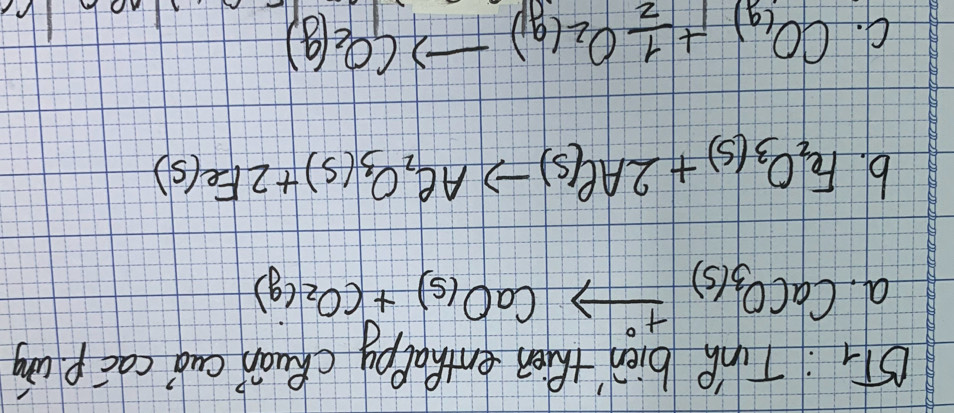 BT1: Tính biến thiên enthalpy chuẩn của các p.ứng
a. CaCO₃(s) —t°→ CaO(s) + CO₂(g)
b. Fe₂O₃(s) + 2Al(s) → Al₂O₃(s) + 2Fe(s)
c. CO(g) + 1/2 O₂(g) → CO₂(g)